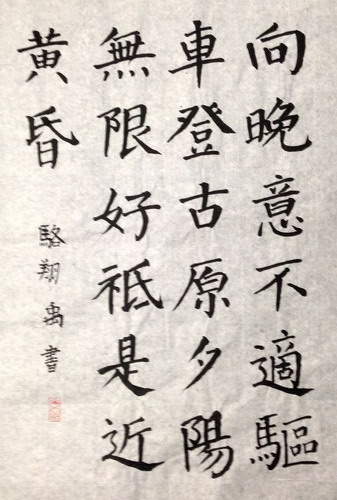 向晚意不適驅
車登古原夕陽
無限好祗是近
黄昏
駱翔禹書